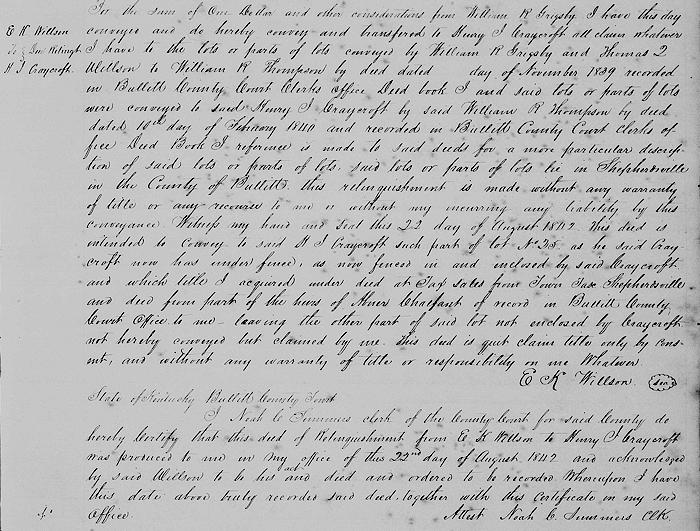 For the sum of One Dollar and other considerations from William R Grigsby I have this day
E K Willson
conveyed and do hereby convey and transfered to Henry I Craycroft all claim whatever
To
I have to the lots or parts of lots conveyed by William R Grigsby and Thomas Q
H I Craycroft.
Willson to William R Thompson by deed dated day of November 1839 recorded
in Bullitt County Court Clerks office Deed book I and said lots or parts of lots
were conveyed to said Henry I Craycroft by said William R Thompson by deed
dated 10th day of February 1840 and recorded in Bullitt County Court Clerks of-
fice Deed Book I reference is made to said deeds for a more particular descrip-
tion of said lots or parts of lots, said lots or parts of lots lie in Shepherdsville
in the County of Bullitt. this relinquishment is made without any warranty
of title or any recourse to me is without my incurring any liability by this
conveyance. Witness my hand and seal this 22 day of August 1842 This deed is
intended to convey to said H I Craycroft such part of lot No 25 as he said Cray-
croft now has under fence, as now fenced in and inclosed by said Craycroft
and which title I acquired under deed at Tax sales from Town Tax Shepherdsville
and deed from part of the heirs of Abner Chalfant of record in Bullitt County
Court Office to me - leaving the other part of said lot not enclosed by Craycroft
not hereby conveyed but claimed by me. this deed is quit claim title only by con-
nt, and without any warranty of title or responsibility on me Whatever
E K Willson Seal
State of Kentucky Bullitt County Court
I Noah C Summers clerk of the County Court for said County do
hereby Certify that this deed of Relinquishment from E K Willson to Henry I Craycroft
was produced to me in my office of this 22nd day of August 1842 and acknowledged
by said Willson to be his act and deed and ordered to be recorded Whereupon I have
this date above truly recorded said deed, together with this Certificate in my said
Office.
Attest Noah C. Summers Clk.